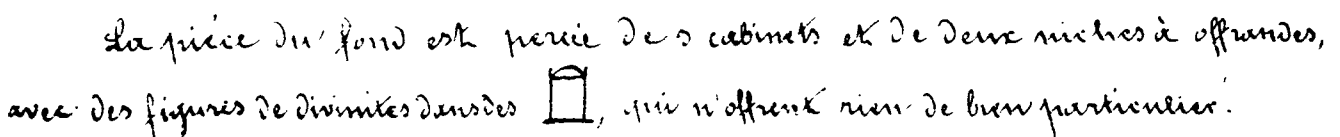 La pièce du fond est percée de 3 cabinets et de deux niches à offrandes,
avec des figures de divinités dans des , qui n'offrent rien de bien particulier.